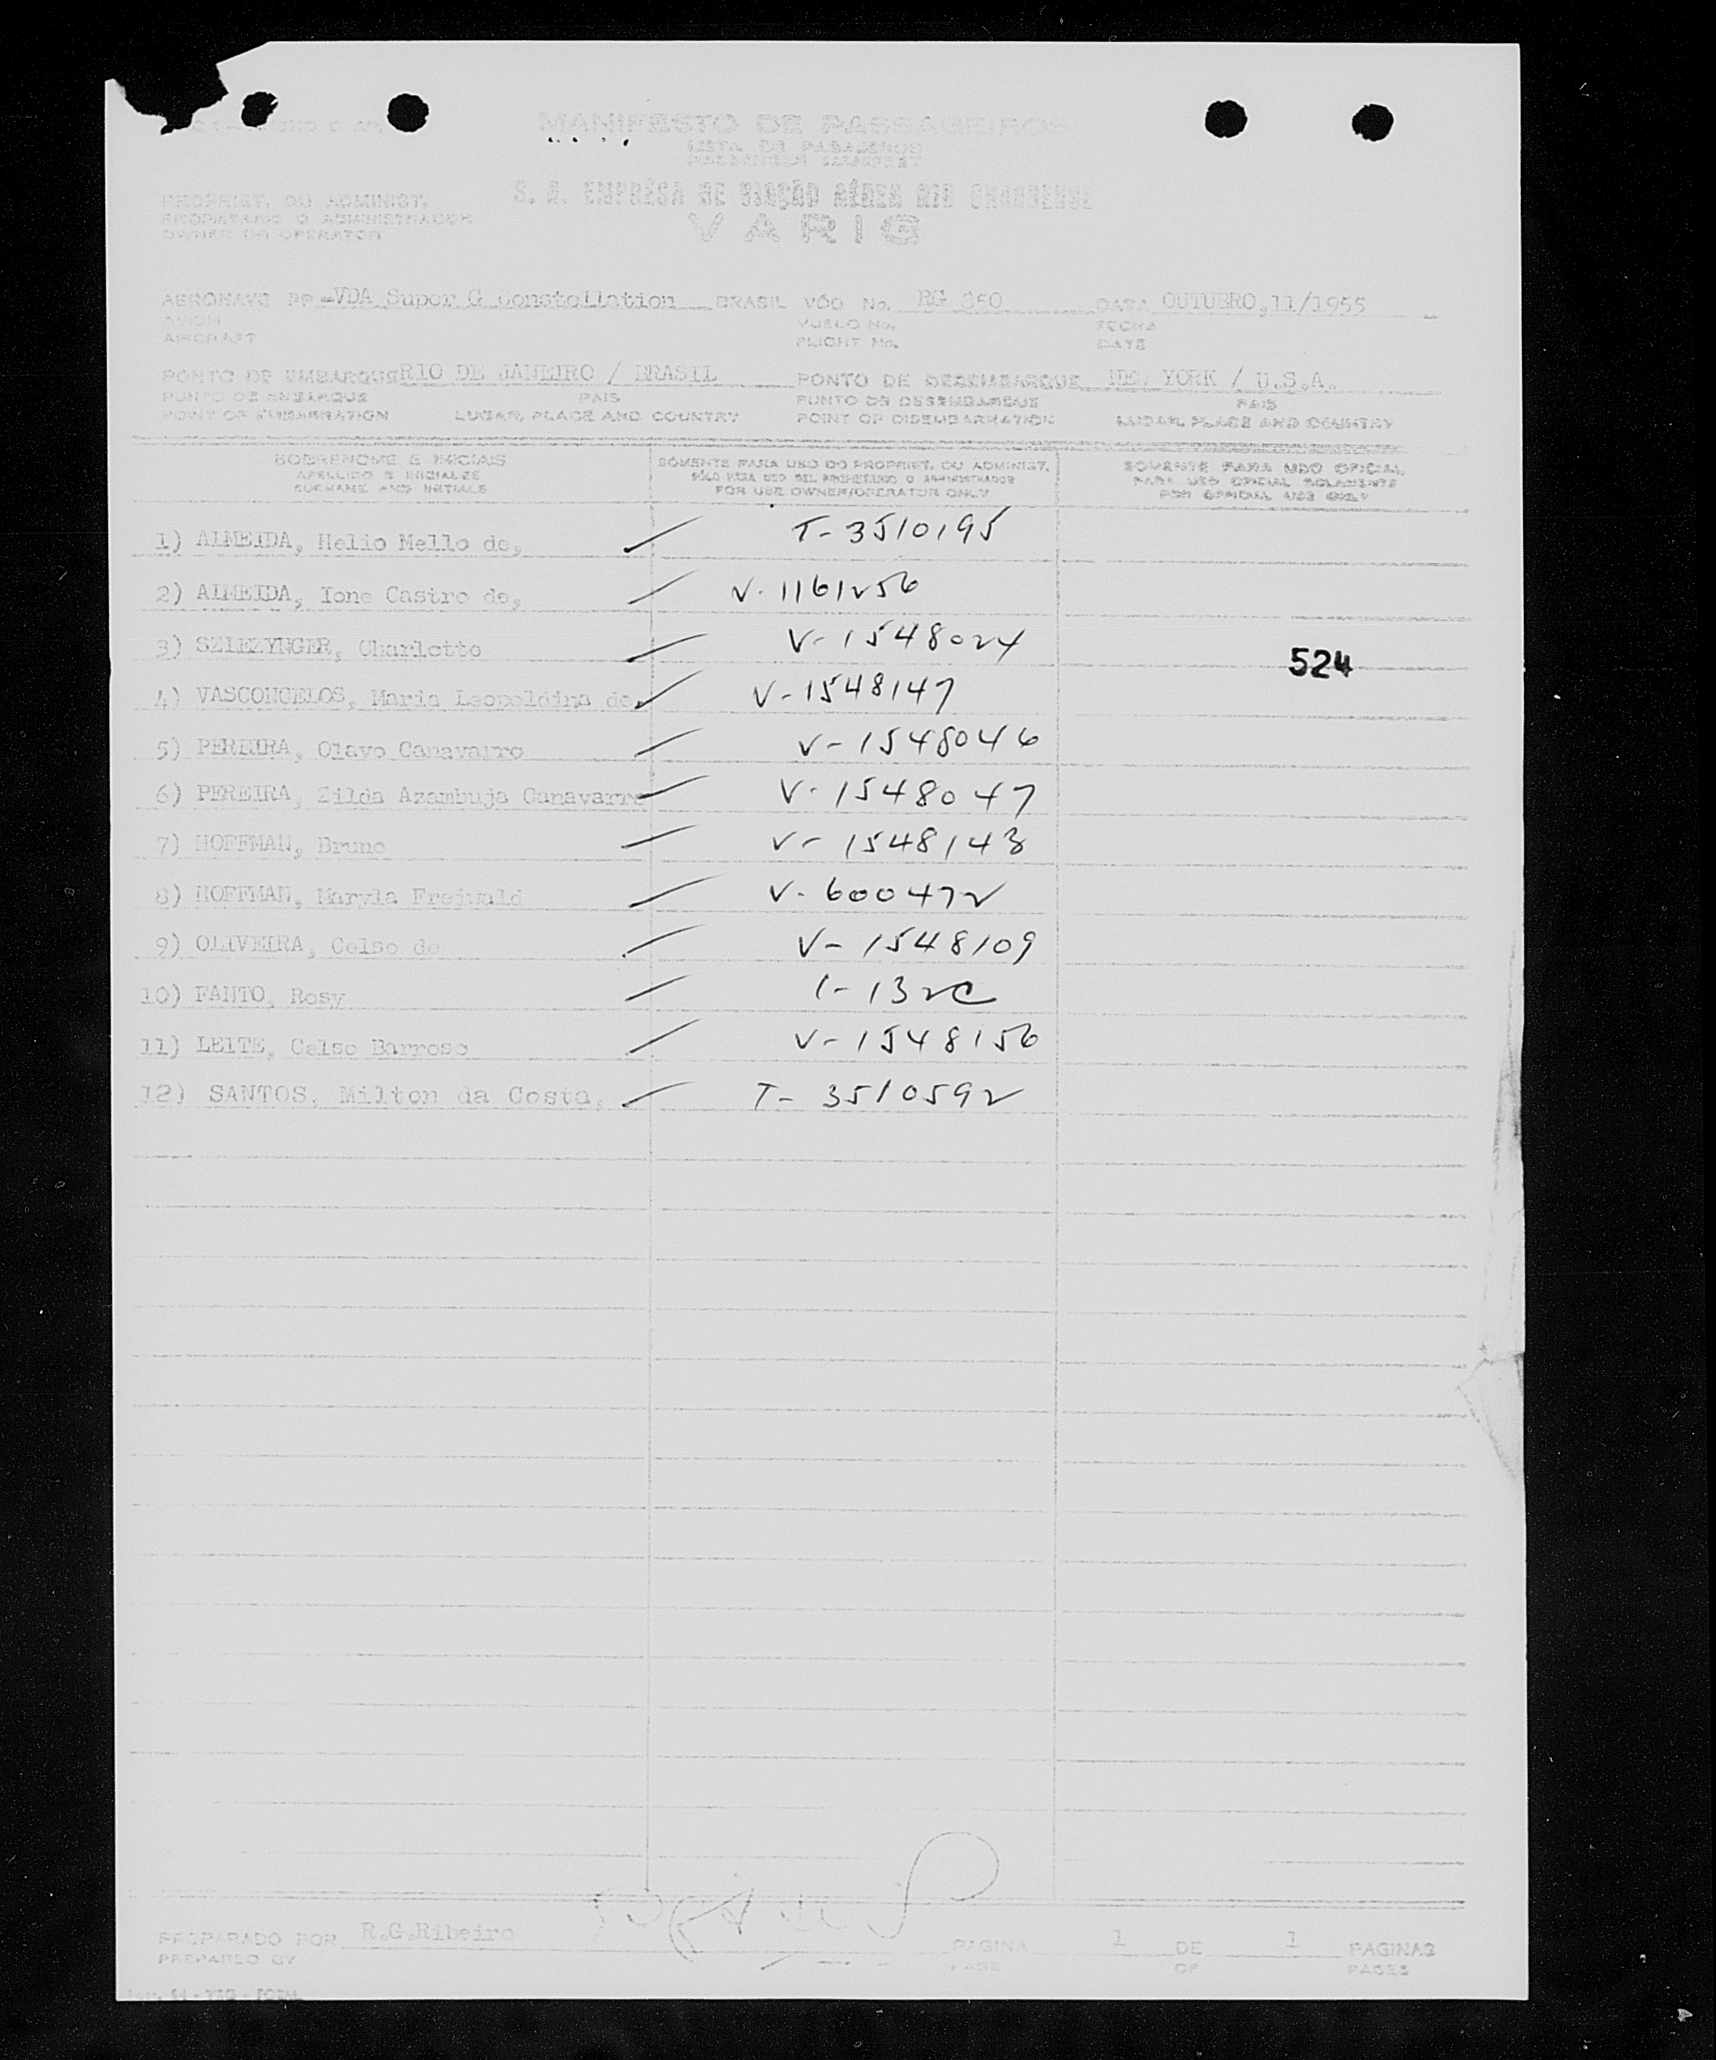 MANIFESTO DE PASSAGEIROS
LISTA DE PASAJEROS
PASSENGER MANIFEST
PROPRIET. OU ADMINIST.
PROPIETARIO O ADMINISTRADOR
OWNER OR OPERATOR
S. A. EMPRÊSA DE VIAÇÃO AÉREA RIO GRANDENSE
VARIG
AERONAVE PP -VDA Super G Constellation BRASIL VÔO No. RG 850 DATA OUTUBRO,11/1955
AVION VUELO No. FECHA
AIRCRAFT FLIGHT No. DATE
PONTO DE EMBARQUE RIO DE JANEIRO / BRASIL PONTO DE DESEMBARQUE NEW YORK / U.S.A.
PUNTO DE EMBARQUE PAIS PUNTO DE DESEMBARQUE PAIS
POINT OF EMBARKATION LUGAR, PLACE AND COUNTRY POINT OF DISEMBARKATION LUGAR, PLACE AND COUNTRY
SOBRENOME E INICIAIS SÓMENTE PARA USO DO PROPRIET. OU ADMINIST. SOMENTE PARA USO OFICIAL
APELLIDO E INICIALES SÓLO PARA USO DEL PROPIETARIO O ADMINISTRADOR PARA USO OFICIAL SOLAMENTE
SURNAME AND INITIALS FOR USE OWNER/OPERATOR ONLY FOR OFFICIAL USE ONLY
1) ALMEIDA, Helio Mello de, T-3510195
2) ALMEIDA, Ione Castro de, V-1161256
3) SZLEZYNGER, Charlotte V-1548024 524
4) VASCONCELOS, Maria Leopoldina de, V-1548147
5) PEREIRA, Olavo Canavarro V-1548046
6) PEREIRA, Zilda Azambuja Canavarro V-1548047
7) HOFFMAN, Bruno V-1548143
8) HOFFMAN, Maryla Freiwald V-600472
9) OLIVEIRA, Celso de V-1548109
10) FANTO, Rosy I-132C
11) LEITE, Celso Barroso V-1548156
12) SANTOS, Milton da Costa, T-3510592
PREPARADO POR R.G.Ribeiro PAGINA 1 DE 1 PAGINAS
PREPARED BY PAGE OF PAGES